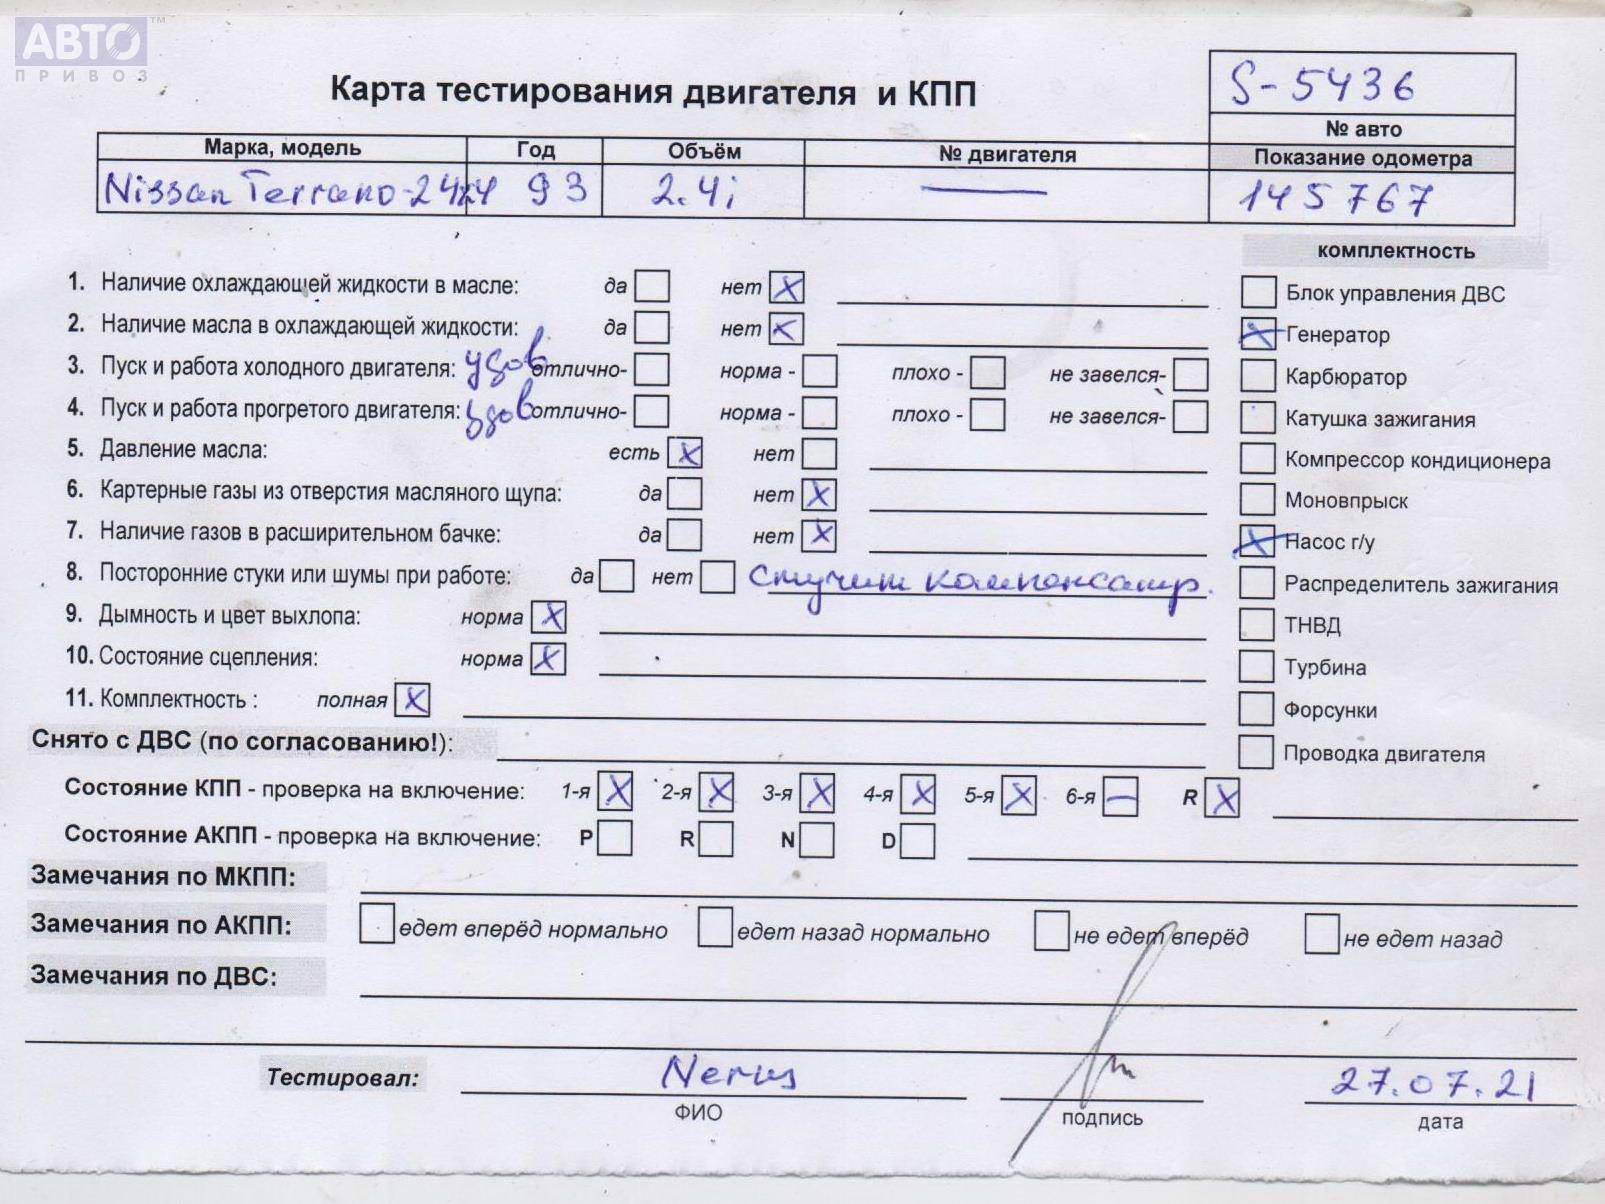 АВТО™
ПРИВОЗ
Карта тестирования двигателя и КПП
S-5436
№ авто
Марка, модель Год Объём № двигателя Показание одометра
Nissan Terrano-2 4x4 93 2.4i — 145767
комплектность
1. Наличие охлаждающей жидкости в масле: да нет X
Блок управления ДВС
2. Наличие масла в охлаждающей жидкости: да нет X
X Генератор
3. Пуск и работа холодного двигателя: удов отлично- норма - плохо - не завелся-
Карбюратор
4. Пуск и работа прогретого двигателя: удов отлично- норма - плохо - не завелся-
Катушка зажигания
5. Давление масла: есть X нет
Компрессор кондиционера
6. Картерные газы из отверстия масляного щупа: да нет X
Моновпрыск
7. Наличие газов в расширительном бачке: да нет X
X Насос г/у
8. Посторонние стуки или шумы при работе: да нет Стучит компенсатр.
Распределитель зажигания
9. Дымность и цвет выхлопа: норма X
ТНВД
10. Состояние сцепления: норма X
Турбина
11. Комплектность : полная X
Форсунки
Снято с ДВС (по согласованию!):
Проводка двигателя
Состояние КПП - проверка на включение: 1-я X 2-я X 3-я X 4-я X 5-я X 6-я — R X
Состояние АКПП - проверка на включение: P R N D
Замечания по МКПП:
Замечания по АКПП: едет вперёд нормально едет назад нормально не едет вперёд не едет назад
Замечания по ДВС:
Тестировал: 27.07.21
ФИО подпись дата